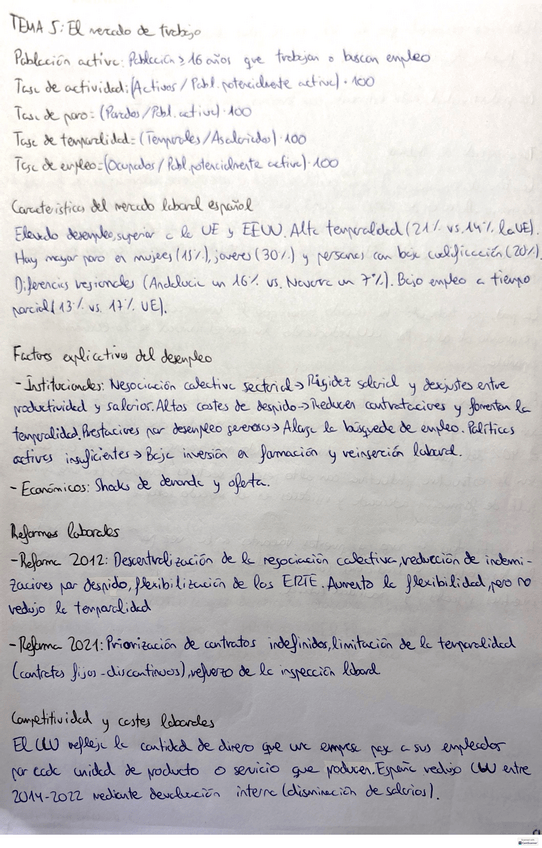 TEMA 5: El mercado de trabajo
Población activa: Población > 16 años que trabajan o buscan empleo
Tasa de actividad: (Activos / Pobl. potencialmente activa) · 100
Tasa de paro = (Parados / Pobl. activa) · 100
Tasa de temporalidad = (Temporales / Asalariados) · 100
Tasa de empleo = (Ocupados / Pobl. potencialmente activa) · 100
Características del mercado laboral español
Elevado desempleo, superior a la UE y EEUU. Alta temporalidad (21% vs. 14% la UE).
Hay mayor paro en mujeres (15%), jóvenes (30%) y personas con baja cualificación (20%).
Diferencias regionales (Andalucía un 16% vs. Navarra un 7%). Bajo empleo a tiempo
parcial (13% vs. 17% UE).
Factores explicativos del desempleo
- Institucionales: Negociación colectiva sectorial → Rigidez salarial y desajustes entre
productividad y salarios. Altos costes de despido → Reducen contrataciones y fomentan la
temporalidad. Prestaciones por desempleo generosas → Alarga la búsqueda de empleo. Políticas
activas insuficientes → Baja inversión en formación y reinserción laboral.
- Económicos: Shocks de demanda y oferta.
Reformas laborales
- Reforma 2012: Descentralización de la negociación colectiva, reducción de indemni-
zaciones por despido, flexibilización de los ERTE. Aumento la flexibilidad, pero no
redujo la temporalidad
- Reforma 2021: Priorización de contratos indefinidos, limitación de la temporalidad
(contratos fijos-discontinuos), refuerzo de la inspección laboral
Competitividad y costes laborales
El CLU refleja la cantidad de dinero que una empresa paga a sus empleados
por cada unidad de producto o servicio que producen. España redujo CLU entre
2014-2022 mediante devaluación interna (disminución de salarios).